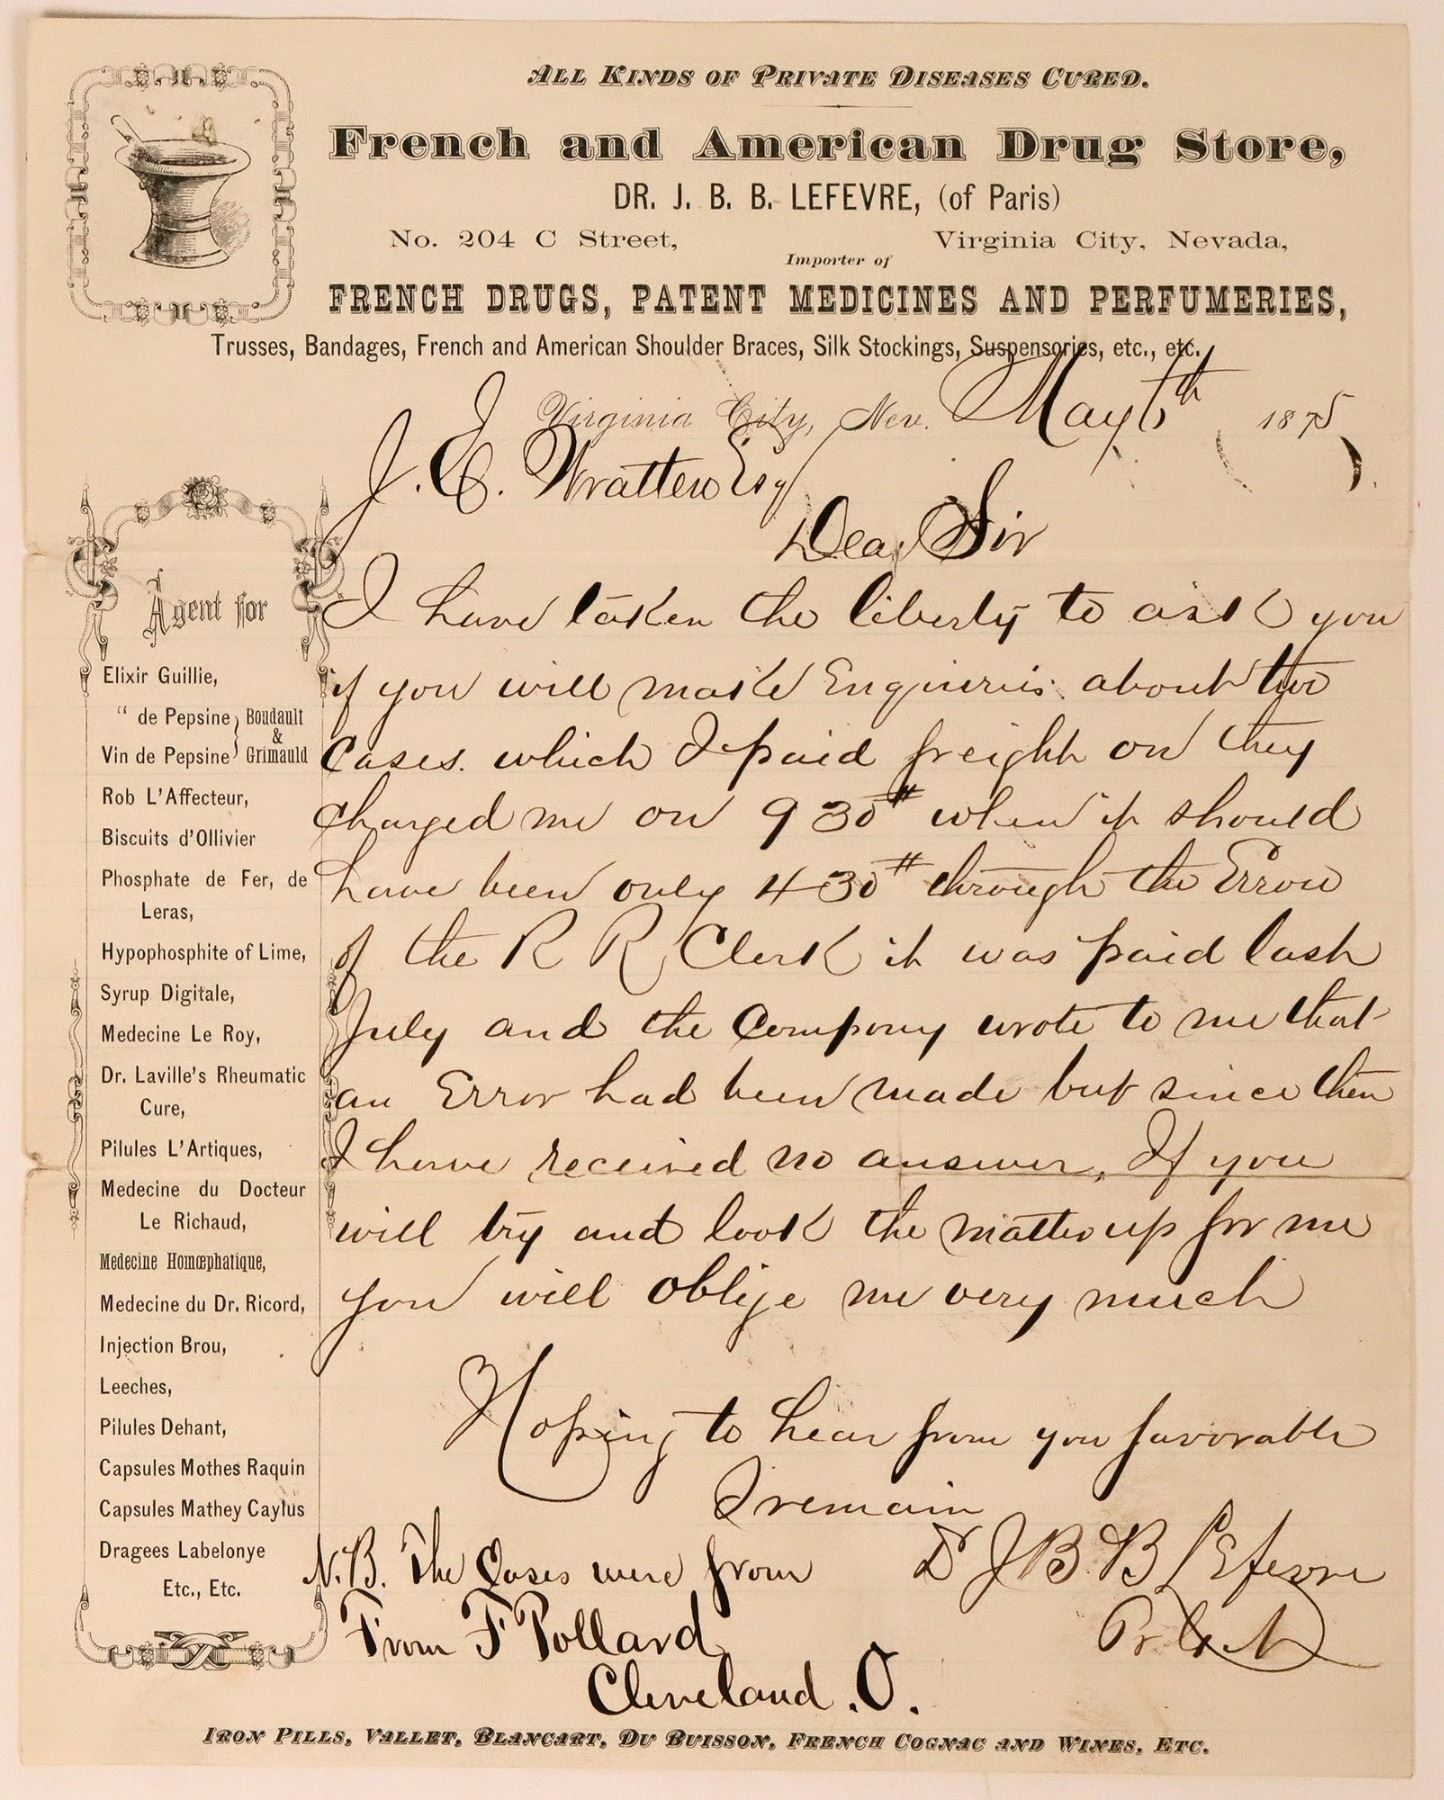 ALL KINDS OF PRIVATE DISEASES CURED.
French and American Drug Store,
DR. J. B. B. LEFEVRE, (of Paris)
No. 204 C Street, Virginia City, Nevada,
Importer of
FRENCH DRUGS, PATENT MEDICINES AND PERFUMERIES,
Trusses, Bandages, French and American Shoulder Braces, Silk Stockings, Suspensories, etc., etc.
Virginia City, Nev. May 6th 1875
J. E. Wratten Esq
Dear Sir
I have taken the liberty to ask you
if you will make Enquiries about two
Cases. which I paid freight on they
charged me on 930# when it should
have been only 430# through the Error
of the R R Clerk it was paid last
July and the Company wrote to me that
an Error had been made but since then
I have received no answer, If you
will try and look the matter up for me
you will oblige me very much
Hoping to hear from you favorable
I remain
Dr J B B LEfevre
N.B. The Cases were from
From F Pollard
Cleveland. O.
Agent for
Elixir Guillie,
" de Pepsine } Boudault
&
Vin de Pepsine } Grimauld
Rob L'Affecteur,
Biscuits d'Ollivier
Phosphate de Fer, de
Leras,
Hypophosphite of Lime,
Syrup Digitale,
Medecine Le Roy,
Dr. Laville's Rheumatic
Cure,
Pilules L'Artiques,
Medecine du Docteur
Le Richaud,
Medecine Homœphatique,
Medecine du Dr. Ricord,
Injection Brou,
Leeches,
Pilules Dehant,
Capsules Mothes Raquin
Capsules Mathey Caylus
Dragees Labelonye
Etc., Etc.
IRON PILLS, VALLET, BLANCART, DU BUISSON, FRENCH COGNAC AND WINES, ETC.